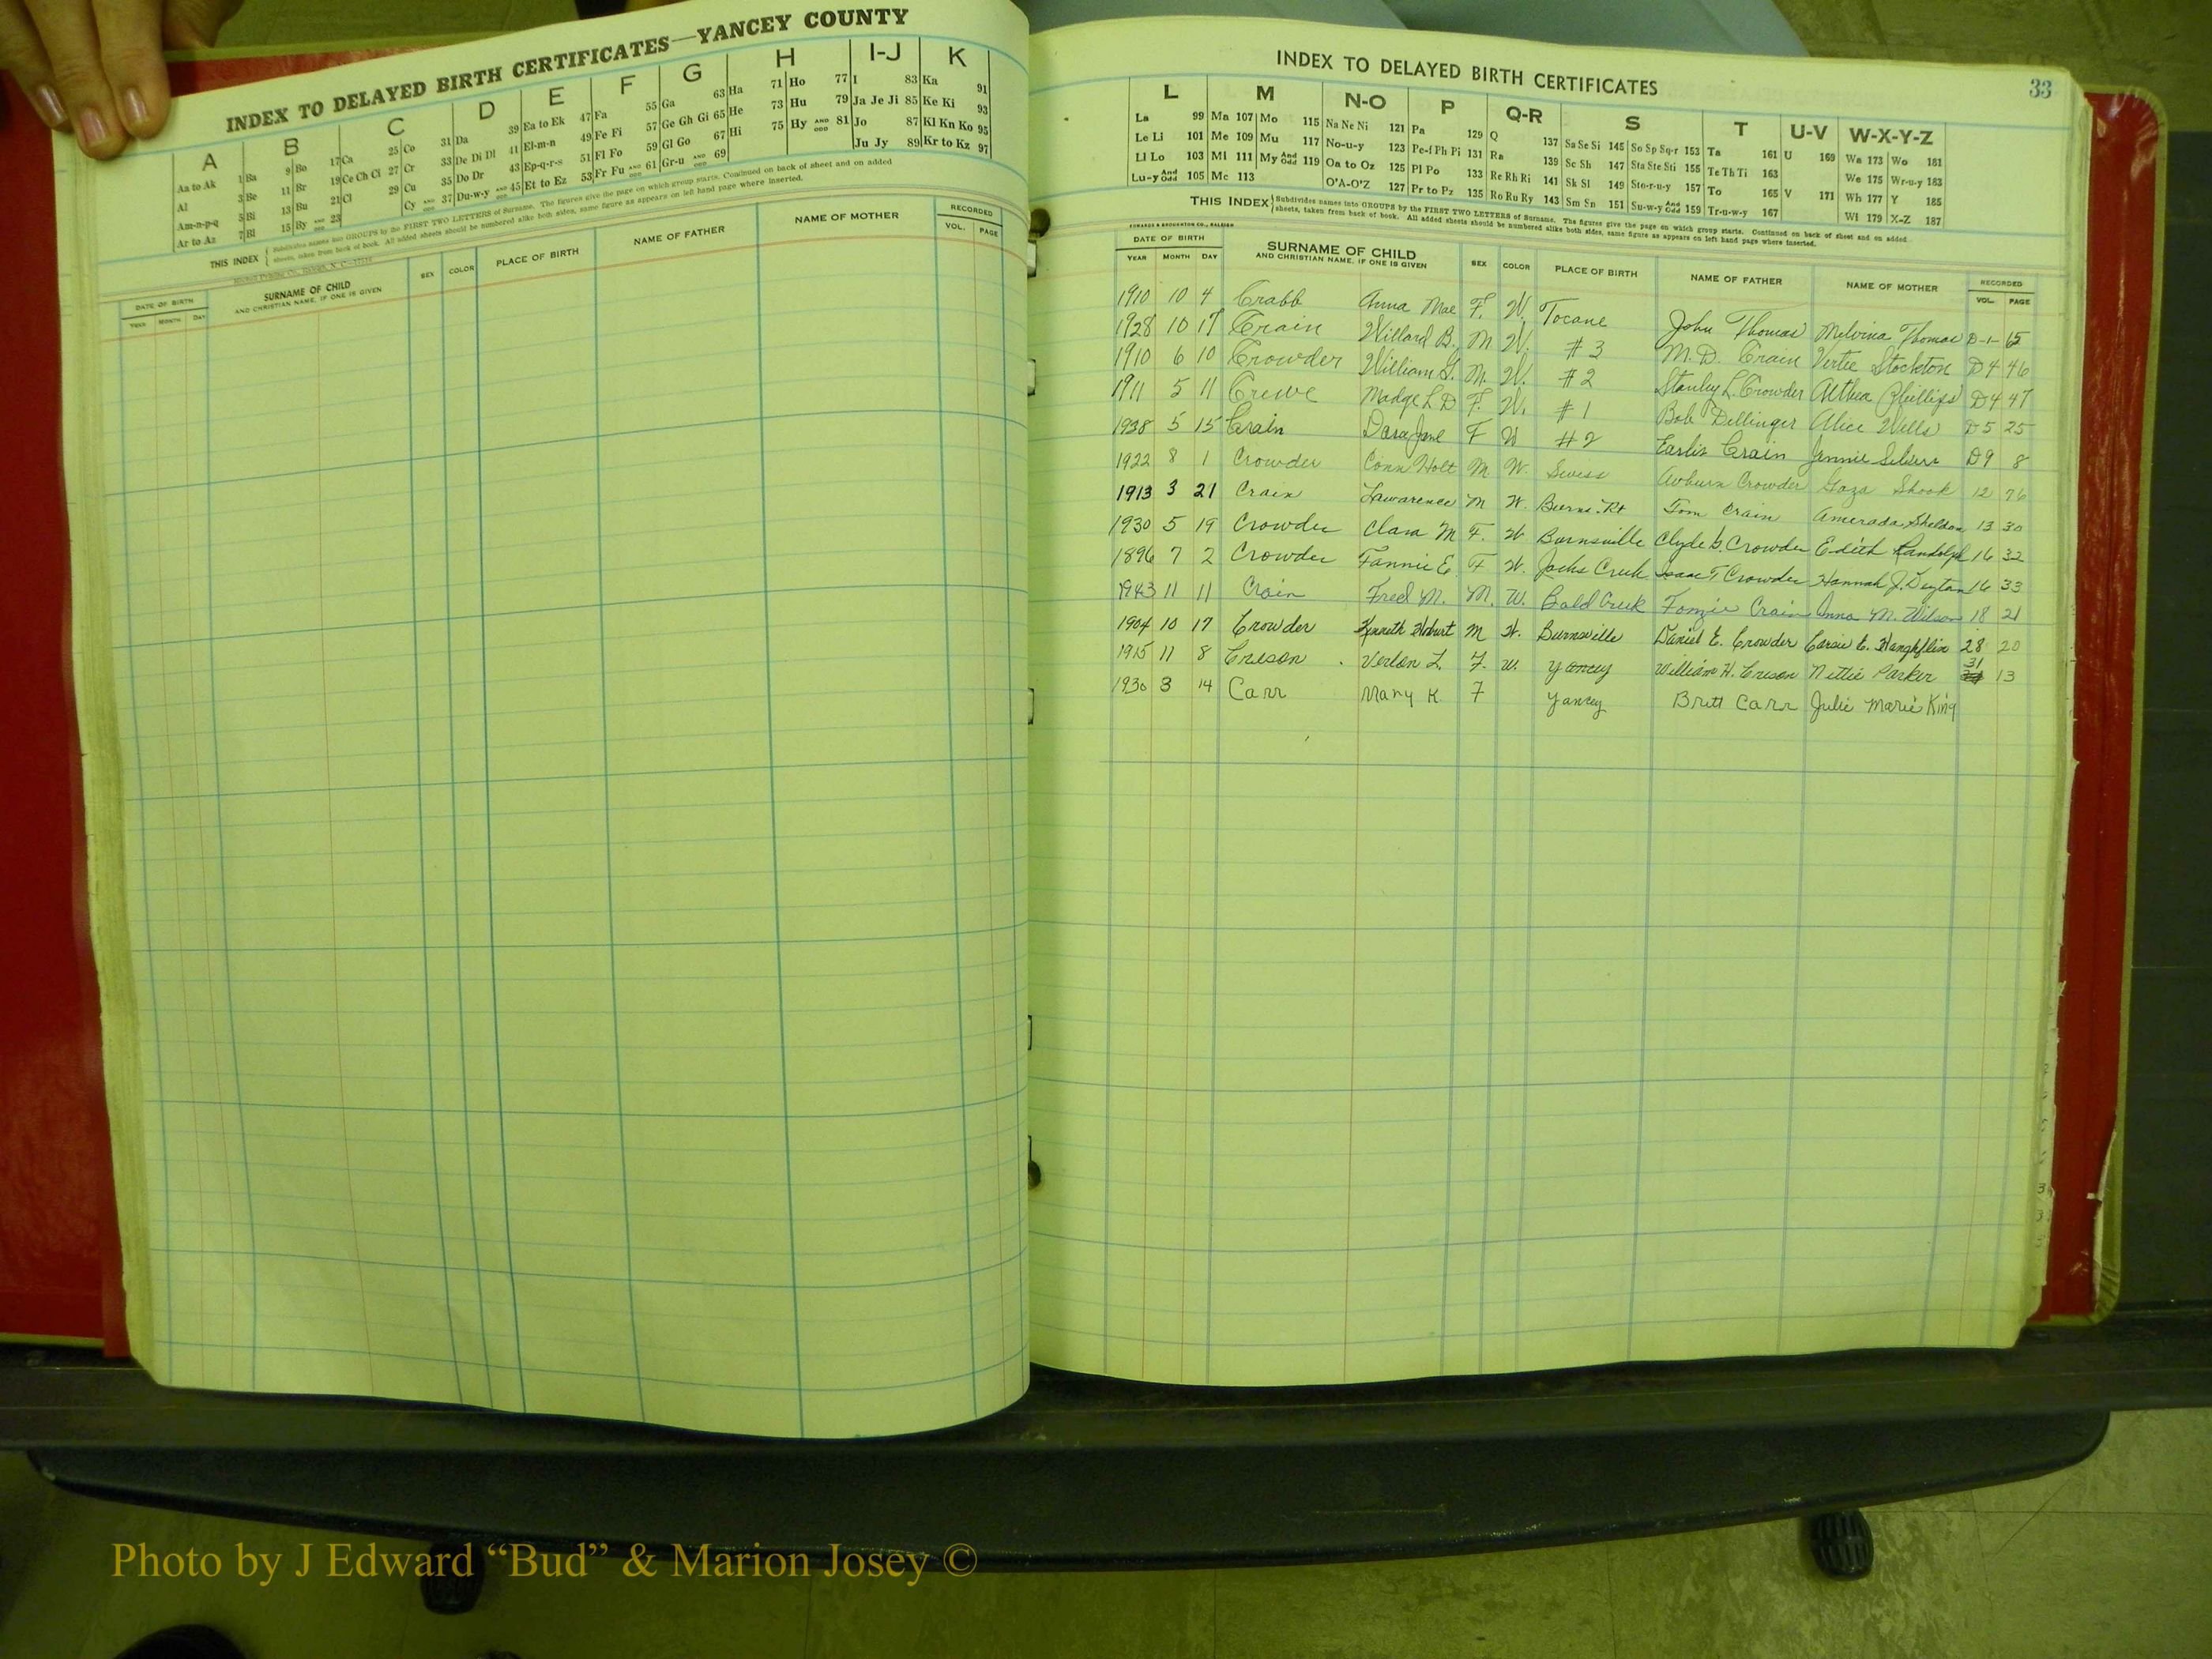 INDEX TO DELAYED BIRTH CERTIFICATES—YANCEY COUNTY
A B C D E F G H I-J K
Aa to Ak 1 Ba 9 Bo 17 Ca 25 Co 31 Da 39 Ea to Ek 47 Fa 55 Ga 63 Ha 71 Ho 77 I 83 Ka 91
Al 3 Be 11 Br 19 Ce Ch Ci 27 Cr 33 De Di Dl 41 El-m-n 49 Fe Fi 57 Ge Gh Gi 65 He 73 Hu 79 Ja Je Ji 85 Ke Ki 93
Am-n-p-q 5 Bi 13 Bu 21 Cl 29 Cu 35 Do Dr 43 Ep-q-r-s 51 Fl Fo 59 Gl Go 67 Hi 75 Hy AND ODD 81 Jo 87 Kl Kn Ko 95
Ar to Az 7 Bl 15 By AND ODD 23 Cy AND ODD 37 Du-w-y AND ODD 45 Et to Ez 53 Fr Fu AND ODD 61 Gr-u AND ODD 69 Ju Jy 89 Kr to Kz 97
THIS INDEX { Subdivides names into GROUPS by the FIRST TWO LETTERS of Surname. The figures give the page on which group starts. Continued on back of sheet and on added
sheets, taken from back of book. All added sheets should be numbered alike both sides, same figure as appears on left hand page where inserted.
DATE OF BIRTH SURNAME OF CHILD SEX COLOR PLACE OF BIRTH NAME OF FATHER NAME OF MOTHER RECORDED
YEAR MONTH DAY AND CHRISTIAN NAME, IF ONE IS GIVEN VOL. PAGE
INDEX TO DELAYED BIRTH CERTIFICATES 33
L M N-O P Q-R S T U-V W-X-Y-Z
La 99 Ma 107 Mo 115 Na Ne Ni 121 Pa 129 Q 137 Sa Se Si 145 So Sp Sq-r 153 Ta 161 U 169 Wa 173 Wo 181
Le Li 101 Me 109 Mu 117 No-u-y 123 Pe-f Ph Pi 131 Ra 139 Sc Sh 147 Sta Ste Sti 155 Te Th Ti 163 We 175 Wr-u-y 183
Ll Lo 103 Mi 111 My And Odd 119 Oa to Oz 125 Pl Po 133 Re Rh Ri 141 Sk Sl 149 Sto-r-u-y 157 To 165 V 171 Wh 177 Y 185
Lu-y And Odd 105 Mc 113 O'A-O'Z 127 Pr to Pz 135 Ro Ru Ry 143 Sm Sn 151 Su-w-y And Odd 159 Tr-u-w-y 167 Wi 179 X-Z 187
THIS INDEX { Subdivides names into GROUPS by the FIRST TWO LETTERS of Surname. The figures give the page on which group starts. Continued on back of sheet and on added
sheets, taken from back of book. All added sheets should be numbered alike both sides, same figure as appears on left hand page where inserted.
EDWARDS & BROUGHTON CO., RALEIGH
DATE OF BIRTH SURNAME OF CHILD SEX COLOR PLACE OF BIRTH NAME OF FATHER NAME OF MOTHER RECORDED
YEAR MONTH DAY AND CHRISTIAN NAME, IF ONE IS GIVEN VOL. PAGE
1910 10 4 Crabb Anna Mae F. W. Tocane John Thomas Melvina Thomas D-1- 65
1928 10 17 Crain Willard B. M W. #3 M. D. Crain Vertie Stockton D4 46
1910 6 10 Crowder William G. M. W. #2 Stanley L. Crowder Althea Phillips D4 47
1911 5 11 Crewe Madge L D F. W. #1 Bob Dellinger Alice Wells D5 25
1938 5 15 Crain Dora Jane F W #2 Crain Jennie D9 8
1922 8 1 Crowder Conn Holt M W. Swiss Auburn Crowder Gaza Shook 12 76
1913 3 21 Crain Lawarence M W. Burns. Rt Tom Crain Sheldon 13 30
1930 5 19 Crowder Clara M F. W Burnsville Clyde G. Crowder Edith Randolph 16 32
1896 7 2 Crowder Fannie E. F W. Jacks Creek Isaac T Crowder Hannah J. Deyton 16 33
1943 11 11 Crain Fred M. M. W. Bald Creek Fonzie Crain Anna M. Wilson 18 21
1904 10 17 Crowder Kenneth Hobart M W. Burnsville Daniel E. Crowder E. 28 20
1915 11 8 Creson Verlon L. F. W. Yancey William H. Creson Nettie Parker 31 13
1930 3 14 Carr Mary K. F Yancey Britt Carr Julie Marie King
Photo by J Edward “Bud” & Marion Josey ©